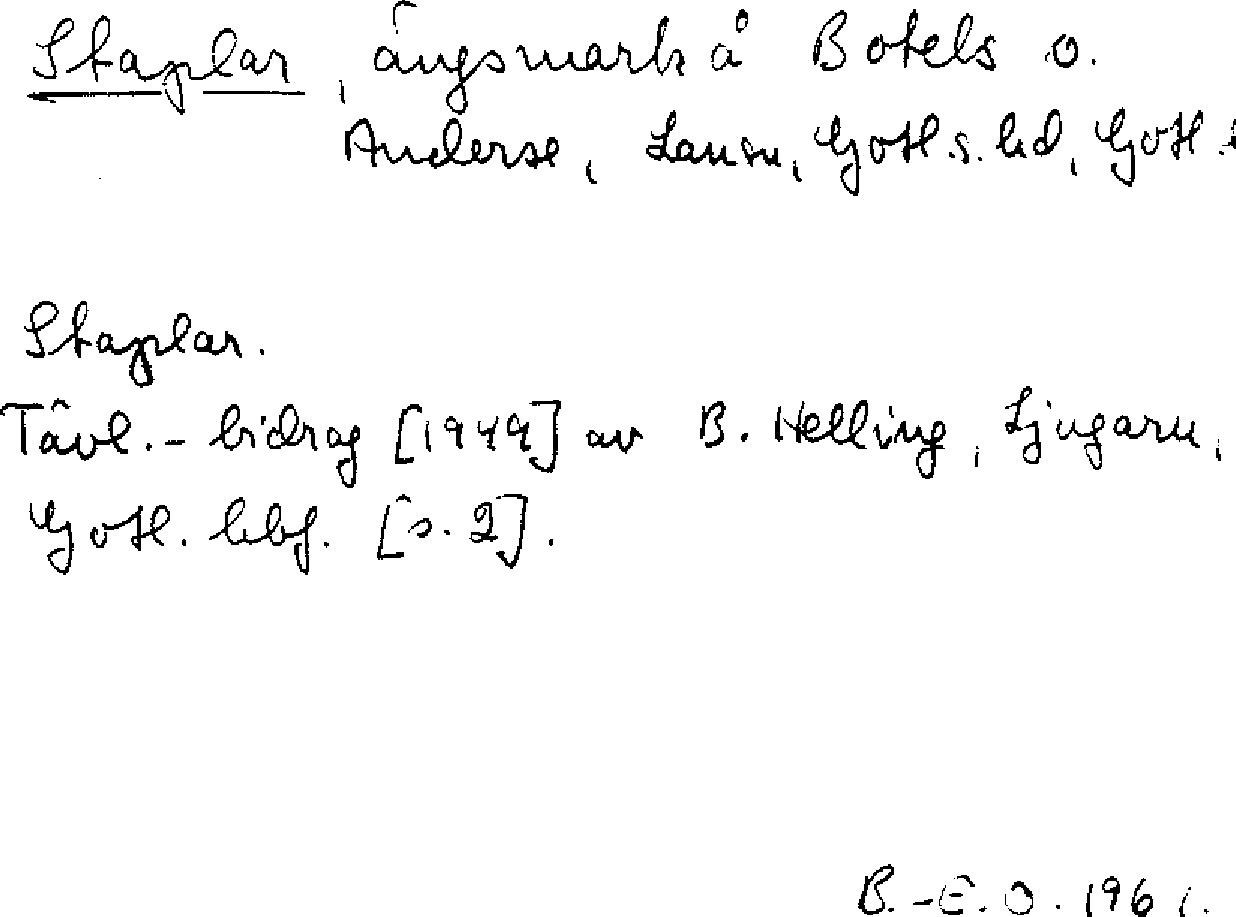 Staplar, ängsmark å Botels o.
Anderse, Lausn, Gotl. s. hd, Gotl.
Staplar.
Tävl.-bidrag [1949] av B. Helling, Ljugarn,
Gotl. hbf. [s. 2].
B.-E. O. 1961.